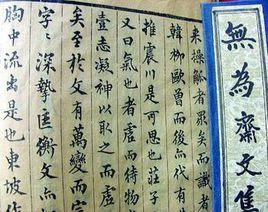 來操觚者眾矣而識者
韓柳歐曾而後代有
推震川是可思也莊子
又曰氣也者虛而待物
壹志凝神以取之而虛
矣至於文有萬變而宗
字字深摯匡衡文而
胸中流出是也東坡作
無為齋文集